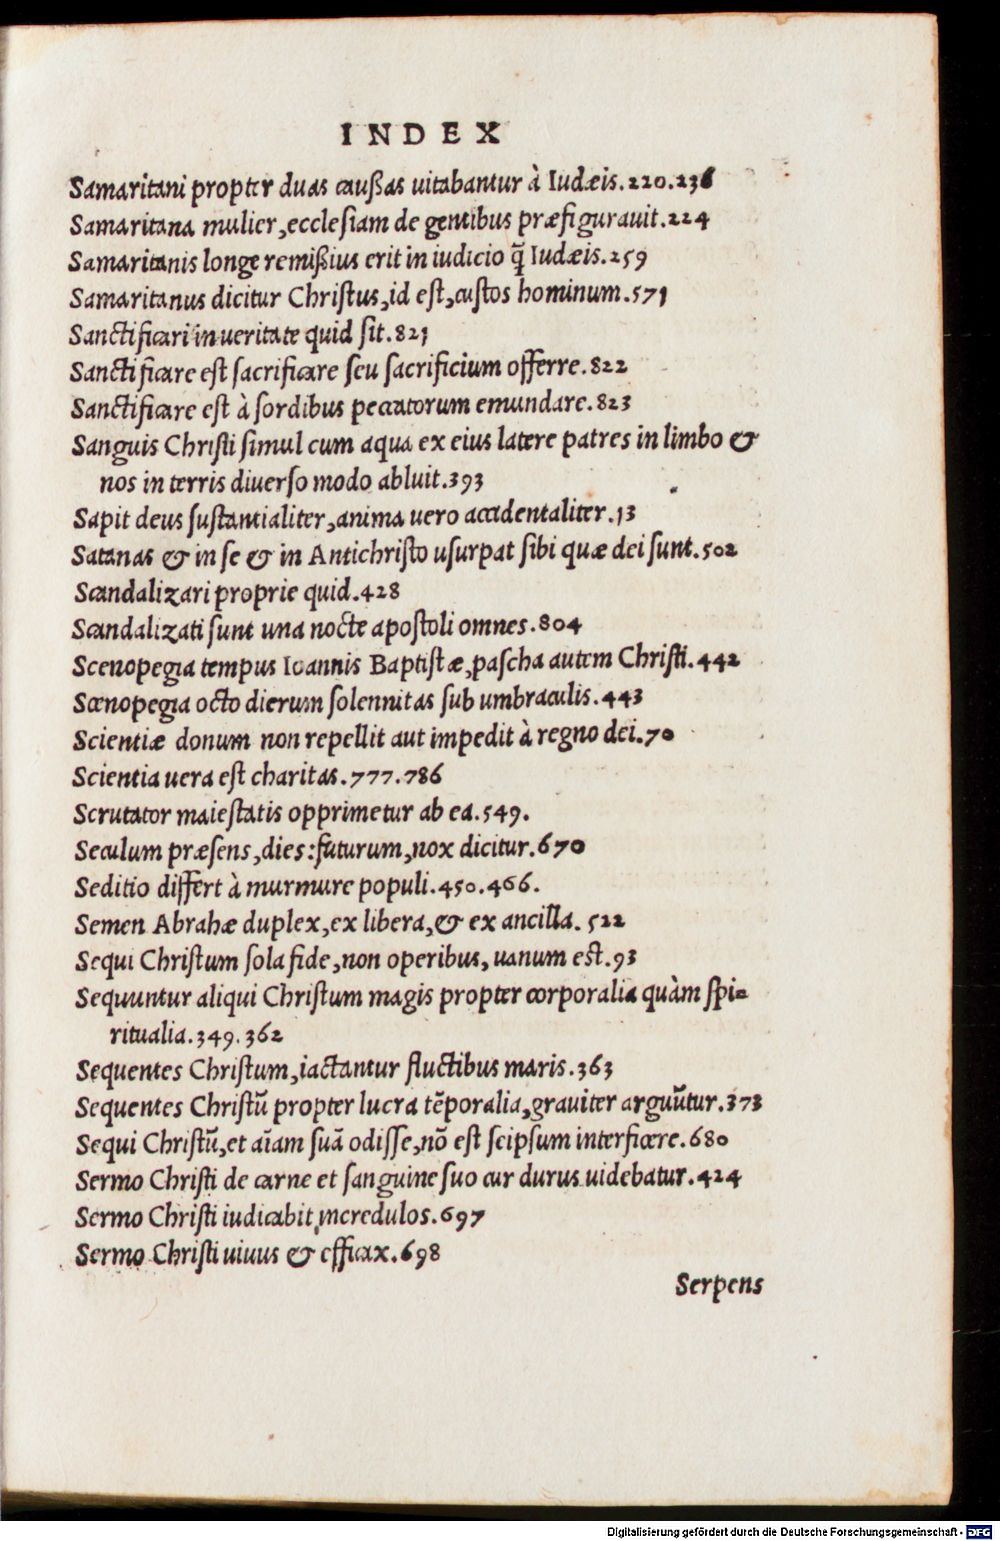 INDEX
Samaritani propter duas caußas uitabantur à Iudæis.220.236
Samaritana mulier,ecclesiam de gentibus præfigurauit.224
Samaritanis longe remißius erit in iudicio q̃ Iudæis.259
Samaritanus dicitur Christus,id est,custos hominum.571
Sanctificari in ueritate quid sit.821
Sanctificare est sacrificare seu sacrificium offerre.822
Sanctificare est à sordibus peccatorum emundare.823
Sanguis Christi simul cum aqua ex eius latere patres in limbo &
nos in terris diuerso modo abluit.393
Sapit deus sustantialiter,anima uero accidentaliter.13
Satanas & in se & in Antichristo usurpat sibi quæ dei sunt.502
Scandalizari proprie quid.428
Scandalizati sunt una nocte apostoli omnes.804
Scenopegia tempus Ioannis Baptistæ,pascha autem Christi.442
Scenopegia octo dierum solennitas sub umbraculis.443
Scientiæ donum non repellit aut impedit à regno dei.70
Scientia uera est charitas.777.786
Scrutator maiestatis opprimetur ab ea.549.
Seculum præsens,dies:futurum,nox dicitur.670
Seditio differt à murmure populi.450.466.
Semen Abrahæ duplex,ex libera,& ex ancilla. 522
Sequi Christum sola fide,non operibus, uanum est.93
Sequuntur aliqui Christum magis propter corporalia quàm spi=
ritualia.349.362
Sequentes Christum,iactantur fluctibus maris.363
Sequentes Christũ propter lucra tẽporalia,grauiter arguũtur.373
Sequi Christũ,et aĩam suã odisse,nõ est seipsum interficere.680
Sermo Christi de carne et sanguine suo cur durus uidebatur.424
Sermo Christi iudicabit incredulos.697
Sermo Christi uiuus & efficax.698
Serpens
Digitalisierung gefördert durch die Deutsche Forschungsgemeinschaft - DFG